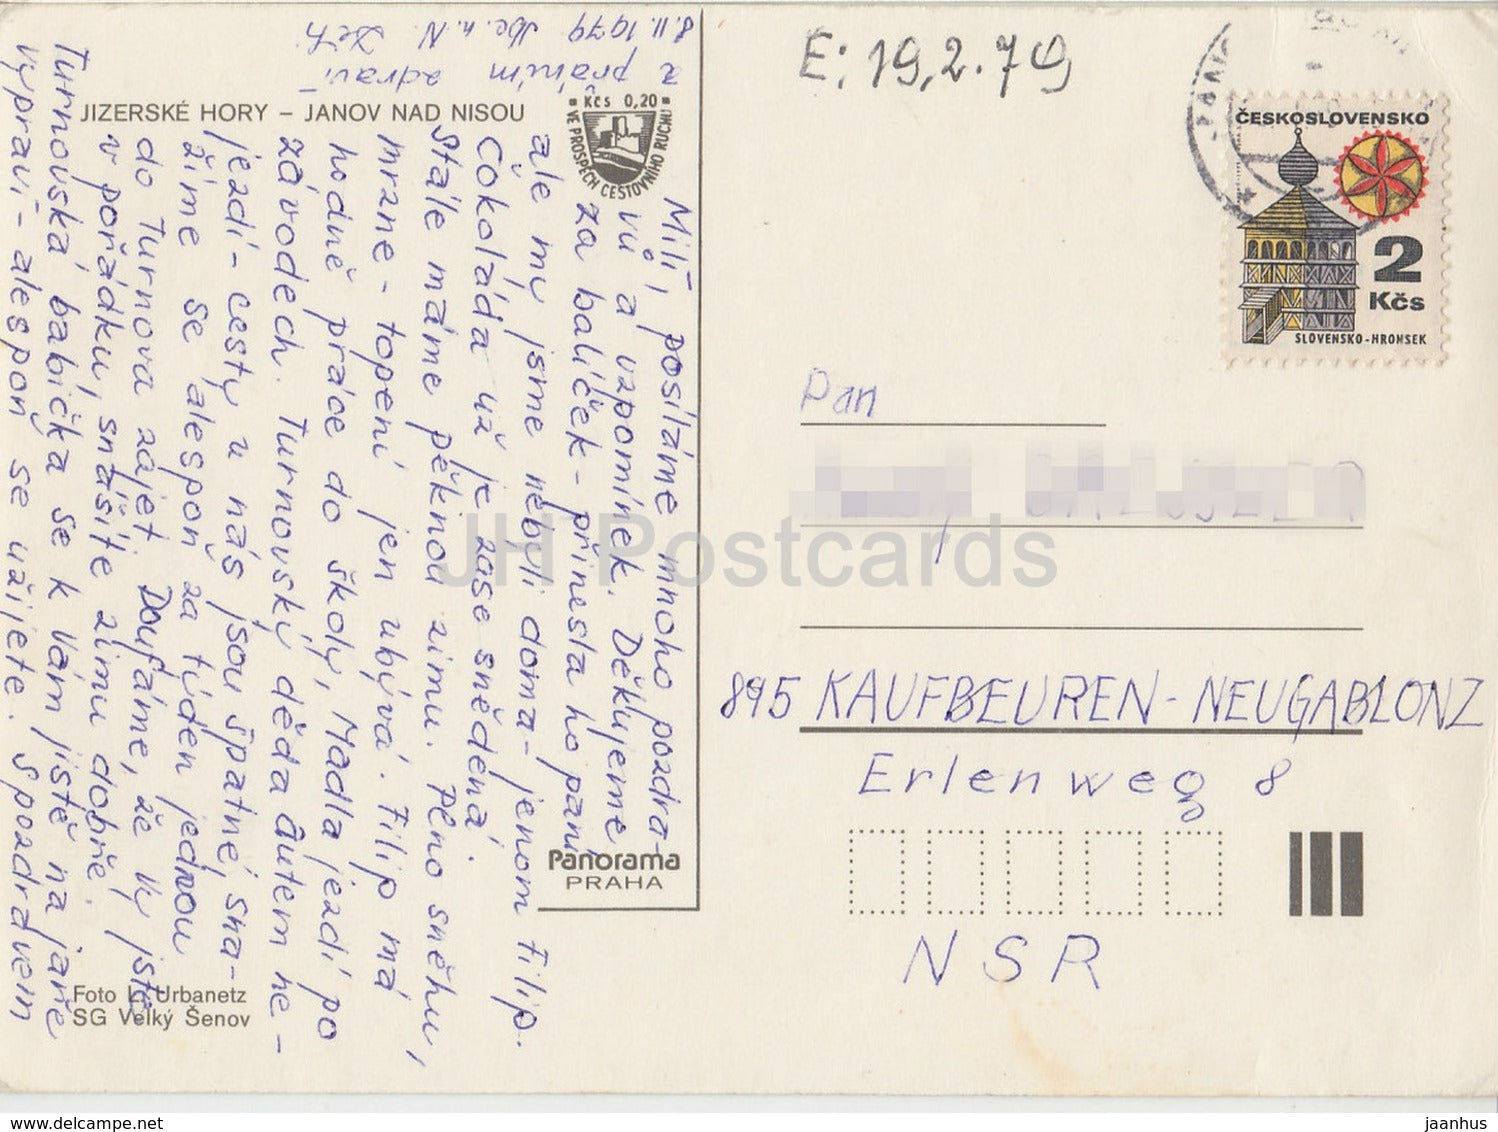 8.II.1979 Jbc.n.N.
z přáním zdraví
JIZERSKÉ HORY – JANOV NAD NISOU
Kčs 0,20
VE PROSPĚCH CESTOVNÍHO RUCHU
Milí, posíláme mnoho pozdra-
vů a vzpomínek. Děkujeme
za balíček - přinesla ho paní
ale my jsme nebyli doma - jenom Filip.
Čokoláda už je zase snědená.
Stále máme pěknou zimu. Plno sněhu,
mrzne - topení jen ubývá. Filip má
hodně práce do školy, Madla jezdí po
závodech. Turnovský děda autem ne-
jezdí - cesty u nás jsou špatné, sna-
žíme se alespoň za týden jednou
do Turnova zajet. Doufáme, že vy jste
v pořádku, snášíte zimu dobře.
Turnovská babička se k Vám jistě na jaře
vypraví - alespoň se užijete. S pozdravem
Panorama
PRAHA
Foto L. Urbanetz
SG Velký Šenov
E: 19.2.79
ČESKOSLOVENSKO
2
Kčs
SLOVENSKO-HRONSEK
Pan
895 KAUFBEUREN - NEUGABLONZ
Erlenweg 8
NSR
JH Postcards
www.delcampe.net
jaanhus